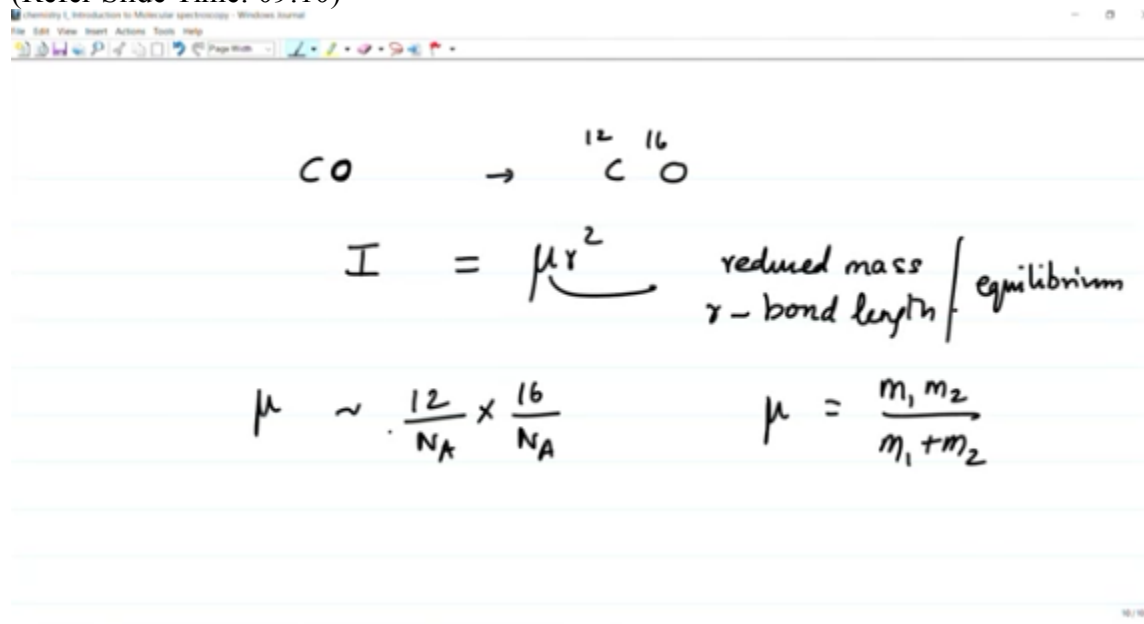 (Refer Slide Time: 09:10)
chemistry I, Introduction to Molecular spectroscopy - Windows Journal
File Edit View Insert Actions Tools Help
Page Width
CO → ¹²C ¹⁶O
I = μr² reduced mass / equilibrium
r - bond length
μ ~ 12/N_A × 16/N_A μ = m₁ m₂ / m₁ + m₂